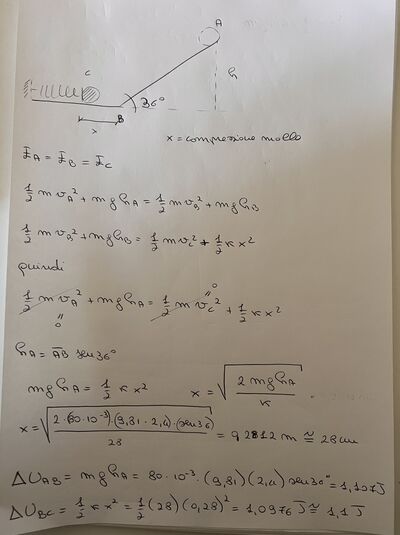 A
c
h
36°
B
x
x = compressione molla
E_A = E_B = E_C
1/2 m v_A² + m g h_A = 1/2 m v_B² + m g h_B
1/2 m v_B² + m g h_B = 1/2 m v_C² + 1/2 k x²
quindi
1/2 m v_A² + m g h_A = 1/2 m v_C² + 1/2 k x²
h_A = AB sen 36°
m g h_A = 1/2 k x² x = √(2 m g h_A / k)
x = √(2·(80·10⁻³)·(9,81·2,4)·(sen 36) / 28) = 0,2812 m ≅ 28 cm
ΔU_AB = m g h_A = 80·10⁻³·(9,81)(2,4) sen 36° = 1,107 J
ΔU_BC = 1/2 k x² = 1/2 (28)(0,28)² = 1,0976 J ≅ 1,1 J